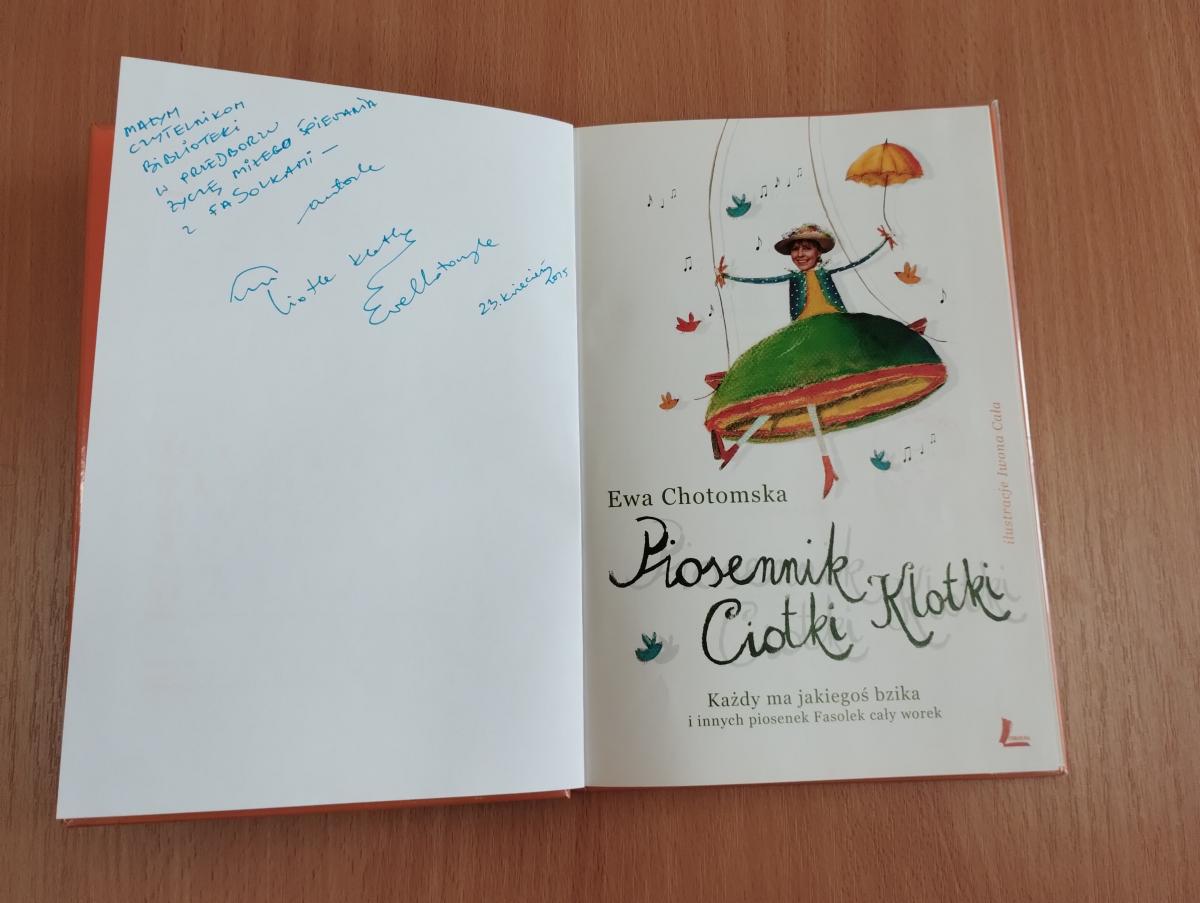 MAŁYM
CZYTELNIKOM
BIBLIOTEKI
W PRZEDBORZU
ŻYCZĘ MIŁEGO ŚPIEWANIA
Z FASOLKAMI —
autorka
Ciotka Klotka
Ewa Chotomska
23. kwiecień
2015
ilustracje Iwona Cała
Ewa Chotomska
Piosennik
Ciotki Klotki
Każdy ma jakiegoś bzika
i innych piosenek Fasolek cały worek